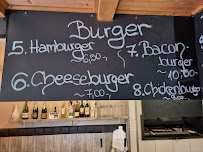 Burger
5. Hamburger
~6,50~
7. Bacon
burger
~10,50~
6. Cheeseburger
~7,00~
8. Chickenburger